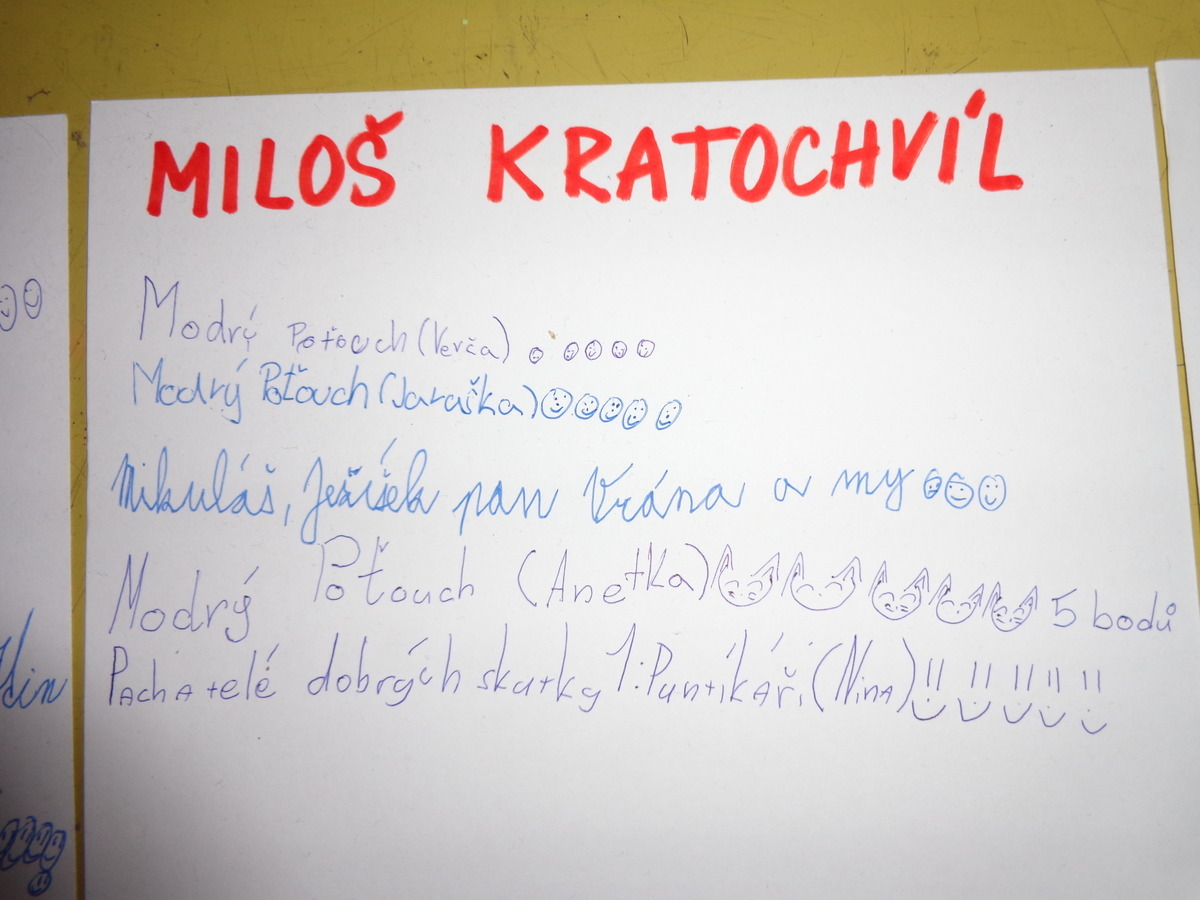 MILOŠ KRATOCHVÍL
Modrý Poťouch (Verča)
Modrý Poťouch (Jaraška)
Mikuláš, Ježíšek pan Vrána a my
Modrý Poťouch (Anetka) 5 bodů
Pachatelé dobrých skutky 1: Puntíkáři (Nina) !! !! !! !! !!